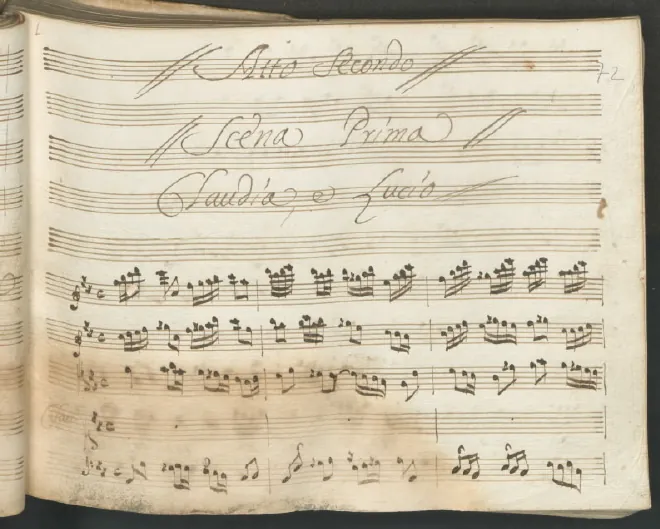 Atto Secondo
72
Scena Prima
Claudia, e Lucio